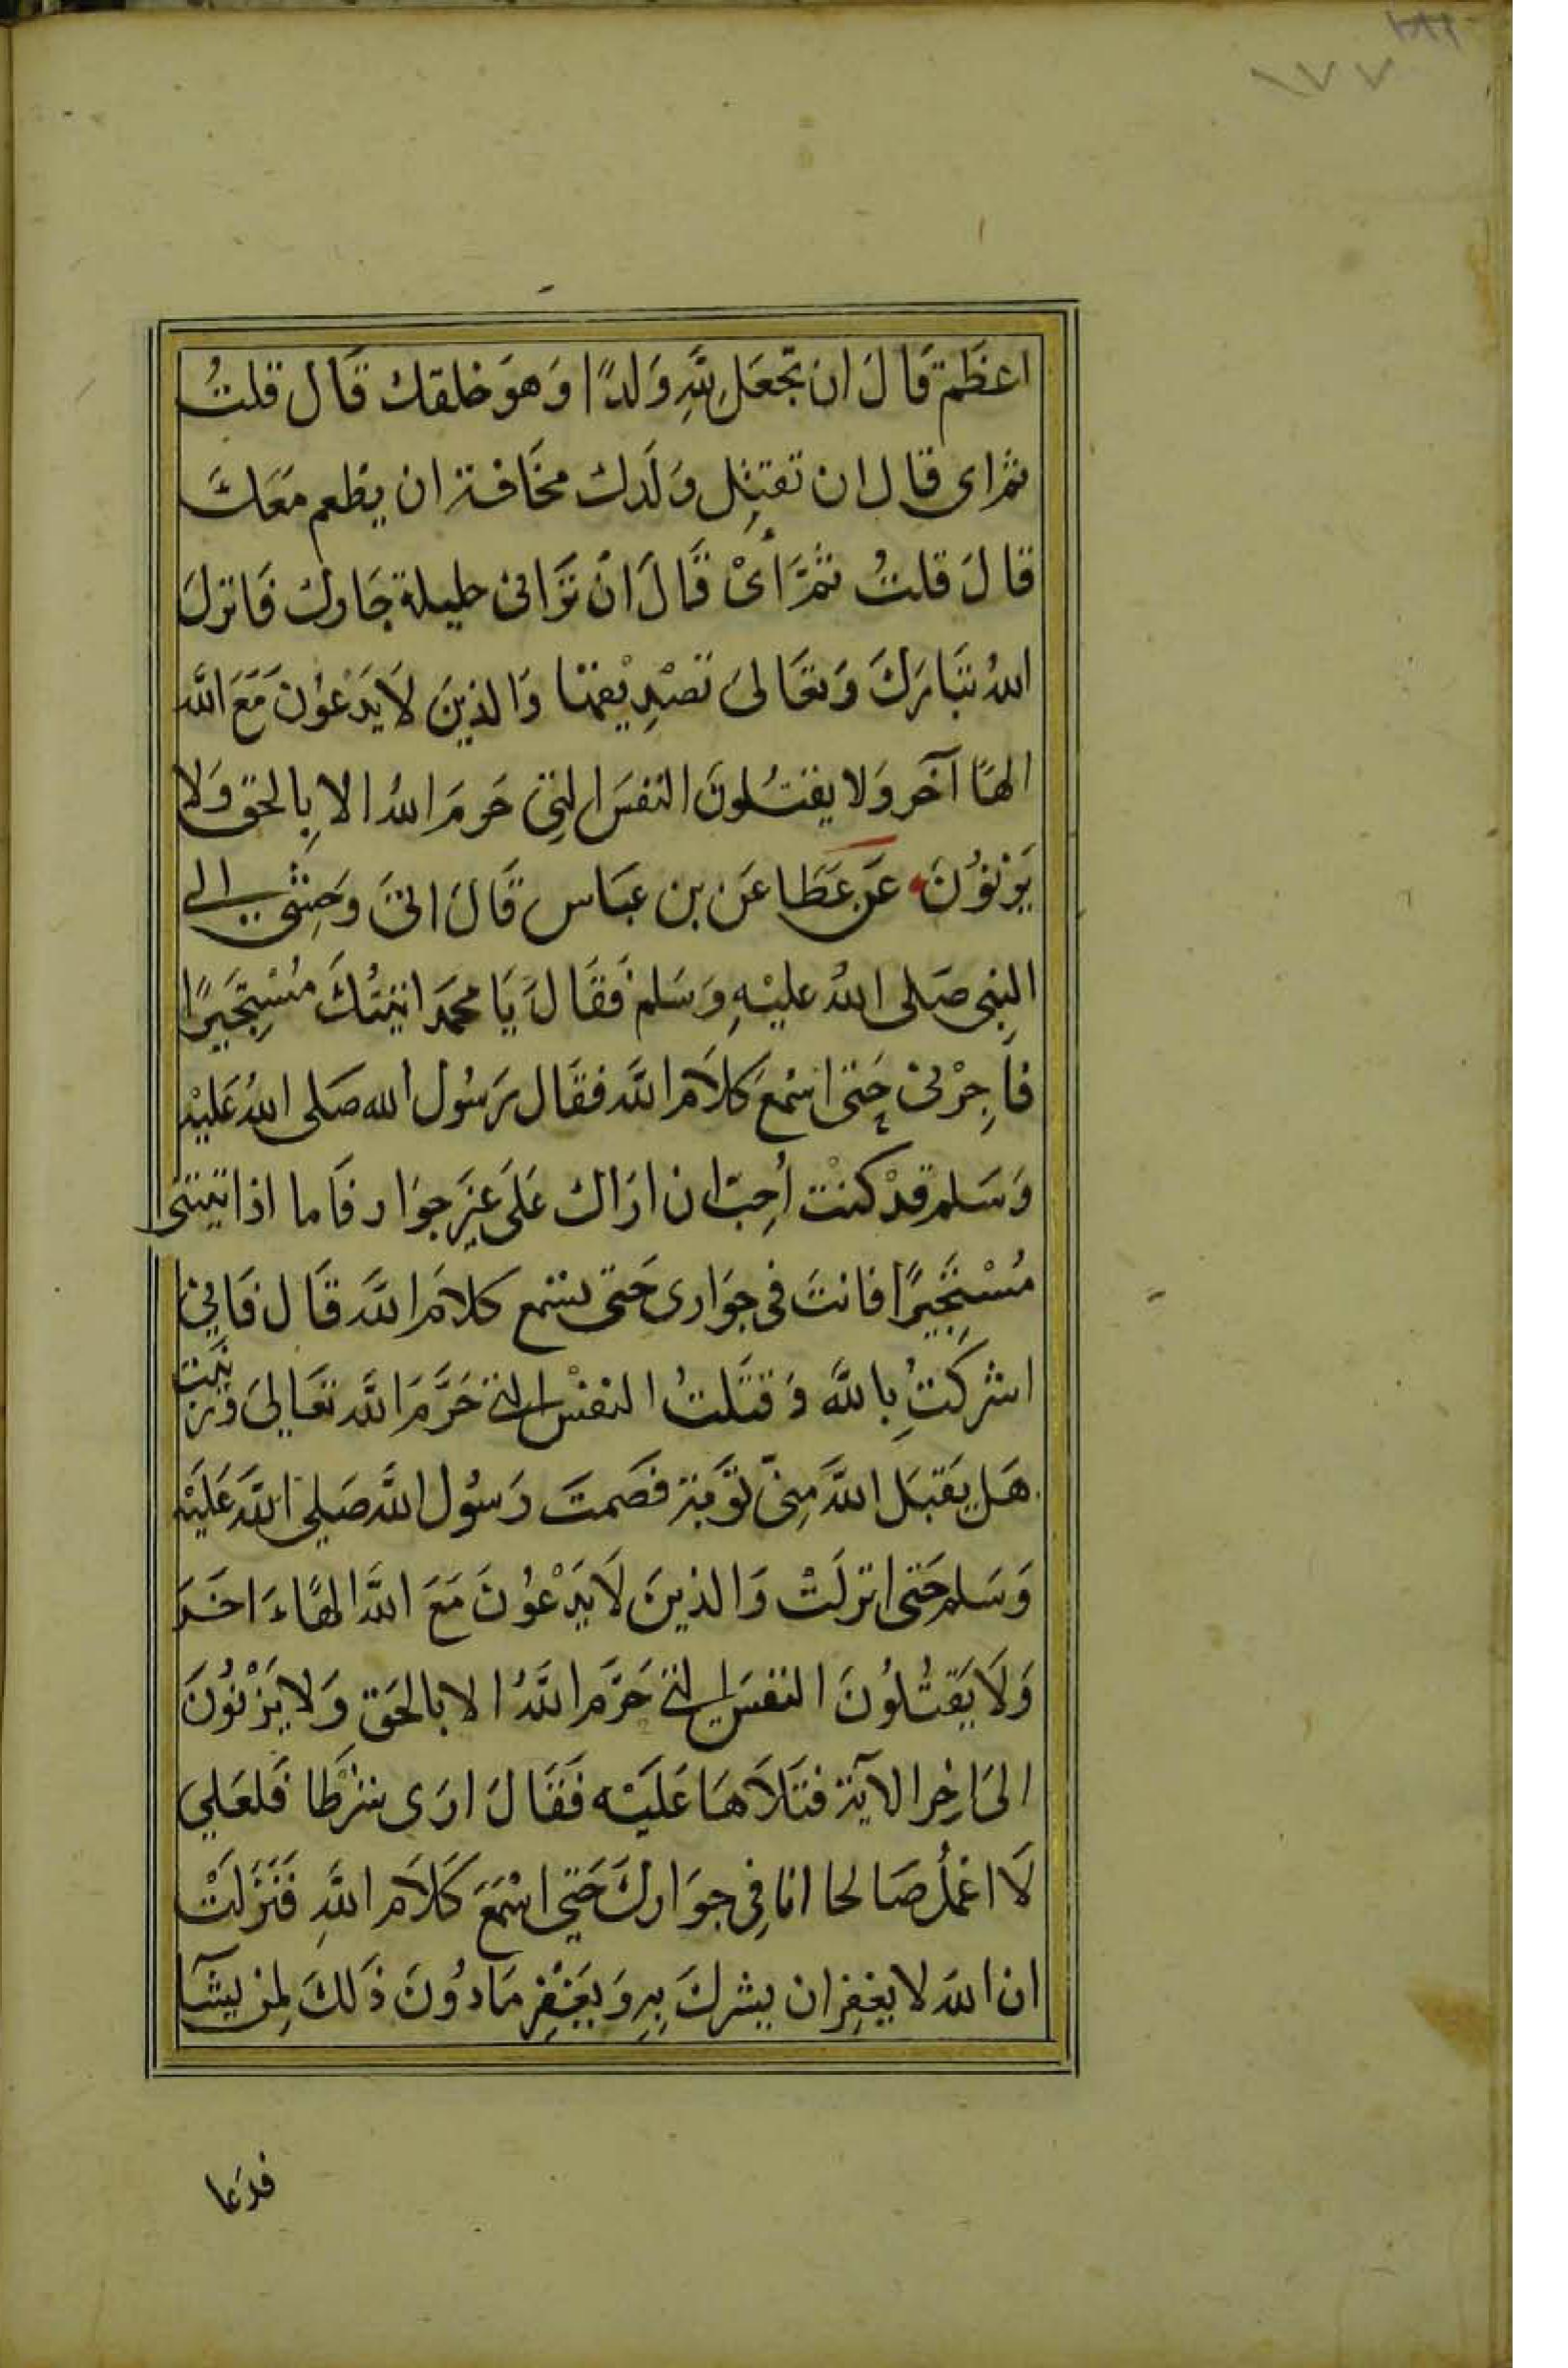 ١٧٧
اعظم قَالَ ان تجعَل لِلّهِ وَلدًا وَهوَ خلقك قَال قلتُ
ثم اى قال ان تقتِل وَلَدك مخَافة ان يطعم مَعَكَ
قالَ قلتُ ثمَّ أىْ قَالَ انْ تزَانى حليلة جَارك فَانزلَ
اللهُ تبَارَكَ وَتعَالىَ تصْدِيْقهَا وَالذينَ لاَ يَدْعوُنَ مَعَ اللَّه
الهًا آخَر وَلا يقتُلونَ النفسَ التِى حَرمَ اللهُ الا بِالحق وَلا
يَزنوُنَ عَن عَطَا عَن بن عبَاس قَالَ اتىَ وَحِشى الى
النبِى صَلى اللهُ عليْهِ وَسَلم فَقَالَ يَا محمَد اتيتُكَ مُسْتِجَيرًا
فاَجِرْنى حَتى اسْمعَ كلاَمَ اللَّه فقَال رَسُول الله صَلى اللهُ عَليْهِ
وَسَلم قدْ كنْت أحِبّ ان ارَاك عَلَى غيَرِ جوَار فَاما اذا تيتنى
مُسْتجِيرًا فانتَ فى جوَارى حَتى تسْمع كلاَمَ اللَّه قَال فَانِى
اشركتُ بِاللَّه وَقتَلتُ النفْس التى حَرَّمَ اللَّه تعَالىَ وَزنيت
هَل يَقبَل اللَّهَ مِنّى توَّبَة فصَمتَ رَسوُل اللَّه صَلى اللَّه عَليْهِ
وَسَلم حَتى انزلَتْ وَالذينَ لاَ يَدْعوُنَ مَعَ اللَّه الهًاءَ اخَرَ
وَلَا يَقتُلوُنَ النفسَ التى حَرَّمَ اللَّهُ الا بالحَق وَلا يَزْنوُنَ
الىَ اخِر الآية فتَلاَهَا عَليْه فَقَالَ ارَى شرْطَا فَلعَلي
لَا اعْمَلُ صَالحا انا فِى جوَاركَ حَتى اسْمَعَ كَلاَمَ اللَّهِ فَنَزَلَتْ
ان اللهَ لا يغفِر ان يشركَ بِهِ وَيَغْفِر مَادوُنَ ذَلكَ لِمن يشَآ
فدَعا